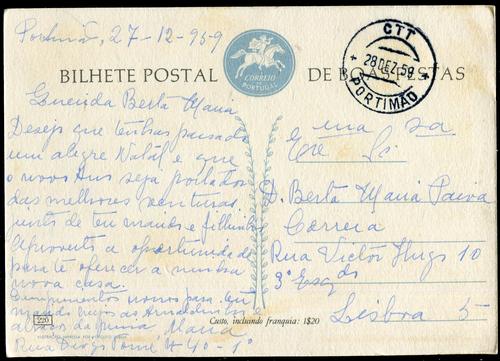 27-12-959
BILHETE POSTAL
CORREIO
DE PORTUGAL
DE BOAS FESTAS
CTT
28 DEZ. 59
PORTIMÃO
Querida Berta Maria
Desejo que tenhas passado
um alegre Natal e que
o novo Ano seja portador
das melhores venturas
junto de teu marido e filhinhos
Aproveito a oportunidade
para te oferecer a minha
nova casa.
Cumprimentos nossos para teu
marido
abraços da prima Maria
Rua Diogo Tomé Nº 40-1º
Exma Sra
D. Berta Maria Paiva
Correia
Rua Victor Hugo 10
3º Esq do
Lisboa 5
220
Custo, incluindo franquia: 1$20